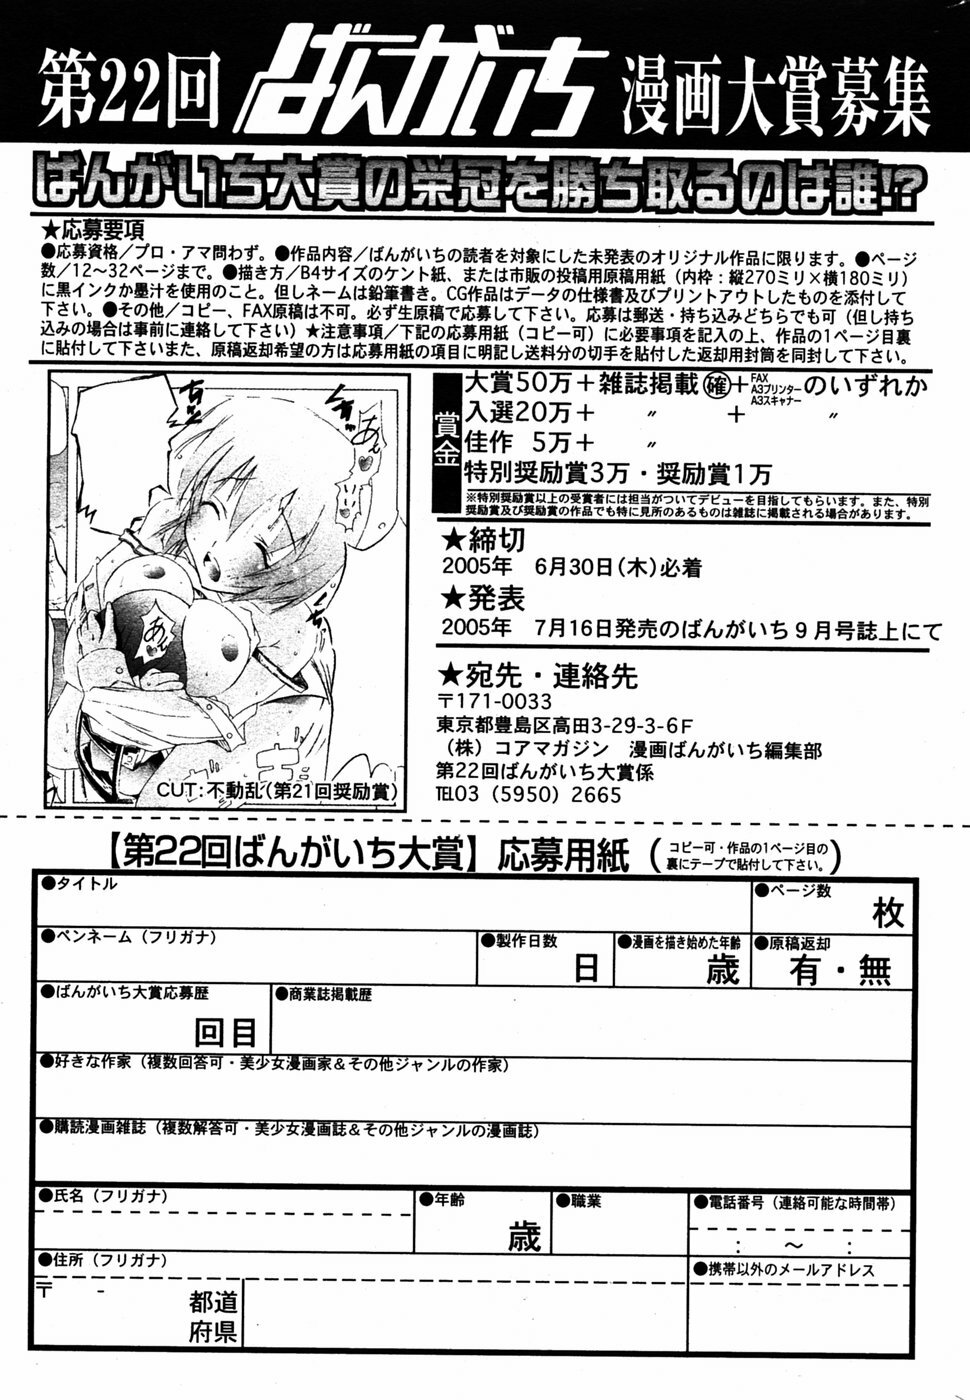 第22回 ばんがいち 漫画大賞募集
ばんがいち大賞の栄冠を勝ち取るのは誰!?
★応募要項
●応募資格／プロ・アマ問わず。●作品内容／ばんがいちの読者を対象にした未発表のオリジナル作品に限ります。●ページ
数／12〜32ページまで。●描き方／B4サイズのケント紙、または市販の投稿用原稿用紙（内枠：縦270ミリ×横180ミリ）
に黒インクか墨汁を使用のこと。但しネームは鉛筆書き。CG作品はデータの仕様書及びプリントアウトしたものを添付して
下さい。●その他／コピー、FAX原稿は不可。必ず生原稿で応募して下さい。応募は郵送・持ち込みどちらでも可（但し持ち
込みの場合は事前に連絡して下さい）★注意事項／下記の応募用紙（コピー可）に必要事項を記入の上、作品の1ページ目裏
に貼付して下さいまた、原稿返却希望の方は応募用紙の項目に明記し送料分の切手を貼付した返却用封筒を同封して下さい。
あん
あん
CUT:不動乱（第21回奨励賞）
賞金
大賞50万＋雑誌掲載㊣確＋FAX A3プリンター A3スキャナーのいずれか
入選20万＋ 〃 ＋ 〃
佳作 5万＋ 〃
特別奨励賞3万・奨励賞1万
※特別奨励賞以上の受賞者には担当がついてデビューを目指してもらいます。また、特別
奨励賞及び奨励賞の作品でも特に見所のあるものは雑誌に掲載される場合があります。
★締切
2005年 6月30日（木）必着
★発表
2005年 7月16日発売のばんがいち９月号誌上にて
★宛先・連絡先
〒171-0033
東京都豊島区高田3-29-3-6F
（株）コアマガジン 漫画ばんがいち編集部
第22回ばんがいち大賞係
℡03（5950）2665
【第22回ばんがいち大賞】応募用紙（コピー可・作品の1ページ目の
裏にテープで貼付して下さい。）
●タイトル
●ページ数
枚
●ペンネーム（フリガナ）
●製作日数
日
●漫画を描き始めた年齢
歳
●原稿返却
有・無
●ばんがいち大賞応募歴
回目
●商業誌掲載歴
●好きな作家（複数回答可・美少女漫画家＆その他ジャンルの作家）
●購読漫画雑誌（複数解答可・美少女漫画誌＆その他ジャンルの漫画誌）
●氏名（フリガナ）
●年齢
歳
●職業
●電話番号（連絡可能な時間帯）
： 〜 ：
●住所（フリガナ）
〒 -
都道
府県
●携帯以外のメールアドレス